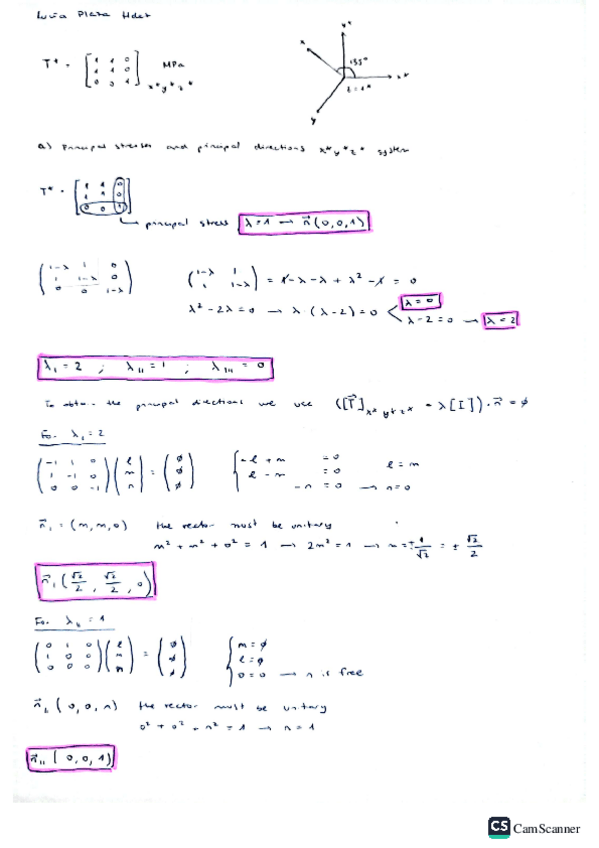 Lucía Plata Hdez
T* = [1 1 0; 1 1 0; 0 0 1] MPa x*y*z*
x y* 135° x* z=z* y
a) Principal stresses and principal directions x*y*z* system
T* = [1 1 0; 1 1 0; 0 0 1]
principal stress λ=1 → n⃗(0,0,1)
(1-λ 1 0; 1 1-λ 0; 0 0 1-λ) (1-λ 1; 1 1-λ) = 1-λ-λ+λ²-1 = 0
λ²-2λ=0 → λ·(λ-2)=0 λ=0
λ-2=0 → λ=2
λI = 2 ; λII = 1 ; λIII = 0
To obtain the principal directions we use ([T⃗]x*y*z* - λ[I])·n⃗ = ∅
For λI = 2
(-1 1 0; 1 -1 0; 0 0 -1)(l; m; n) = (∅; ∅; ∅) {-l+m =0; l-m =0; -n =0 → n=0 l=m
n⃗I = (m,m,0) the vector must be unitary
m²+m²+0²=1 → 2m²=1 → m=±1/√2 = ±√2/2
n⃗I (√2/2, √2/2, 0)
For λII = 1
(0 1 0; 1 0 0; 0 0 0)(l; m; n) = (∅; ∅; ∅) {m=∅; l=∅; 0=0 → n is free
n⃗II (0,0,n) the vector must be unitary
0²+0²+n²=1 → n=1
n⃗II (0,0,1)
CS CamScanner